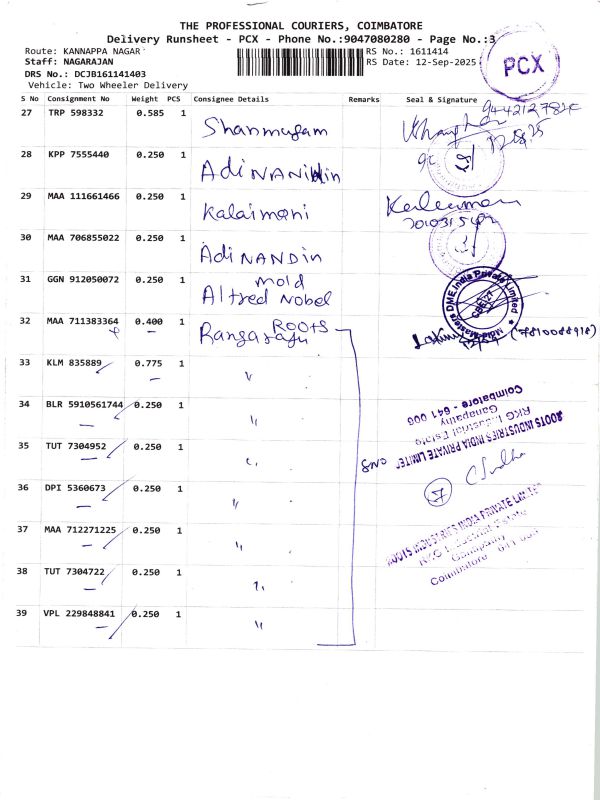 THE PROFESSIONAL COURIERS, COIMBATORE
Delivery Runsheet - PCX - Phone No.:9047080280 - Page No.:3
Route: KANNAPPA NAGAR
RS No.: 1611414
Staff: NAGARAJAN
RS Date: 12-Sep-2025
DRS No.: DCJB161141403
Vehicle: Two Wheeler Delivery
PCX
S No Consignment No Weight PCS Consignee Details Remarks Seal & Signature
27 TRP 598332 0.585 1 Shanmugam
28 KPP 7555440 0.250 1 Adi NANdin
29 MAA 111661466 0.250 1 Kalaimani
30 MAA 706855022 0.250 1 Adi NANDin
31 GGN 912050072 0.250 1 mold
Alfred Nobel
Mold Masters DME India Private Limited
CBE-27
32 MAA 711383364 0.400 1 ROOTS
Rangaraju
(7810088918)
33 KLM 835889 0.775 1 "
34 BLR 5910561744 0.250 1 "
ROOTS INDUSTRIES INDIA PRIVATE LIMITED
RKG Industrial Estate
Ganapathy
Coimbatore - 641 006
35 TUT 7304952 0.250 1 "
36 DPI 5360673 0.250 1 "
C Sudha
7
37 MAA 712271225 0.250 1 "
ROOTS INDUSTRIES INDIA PRIVATE LIMITED
RKG Industrial Estate
Ganapathy
Coimbatore 641 006
38 TUT 7304722 0.250 1 "
39 VPL 229848841 0.250 1 "